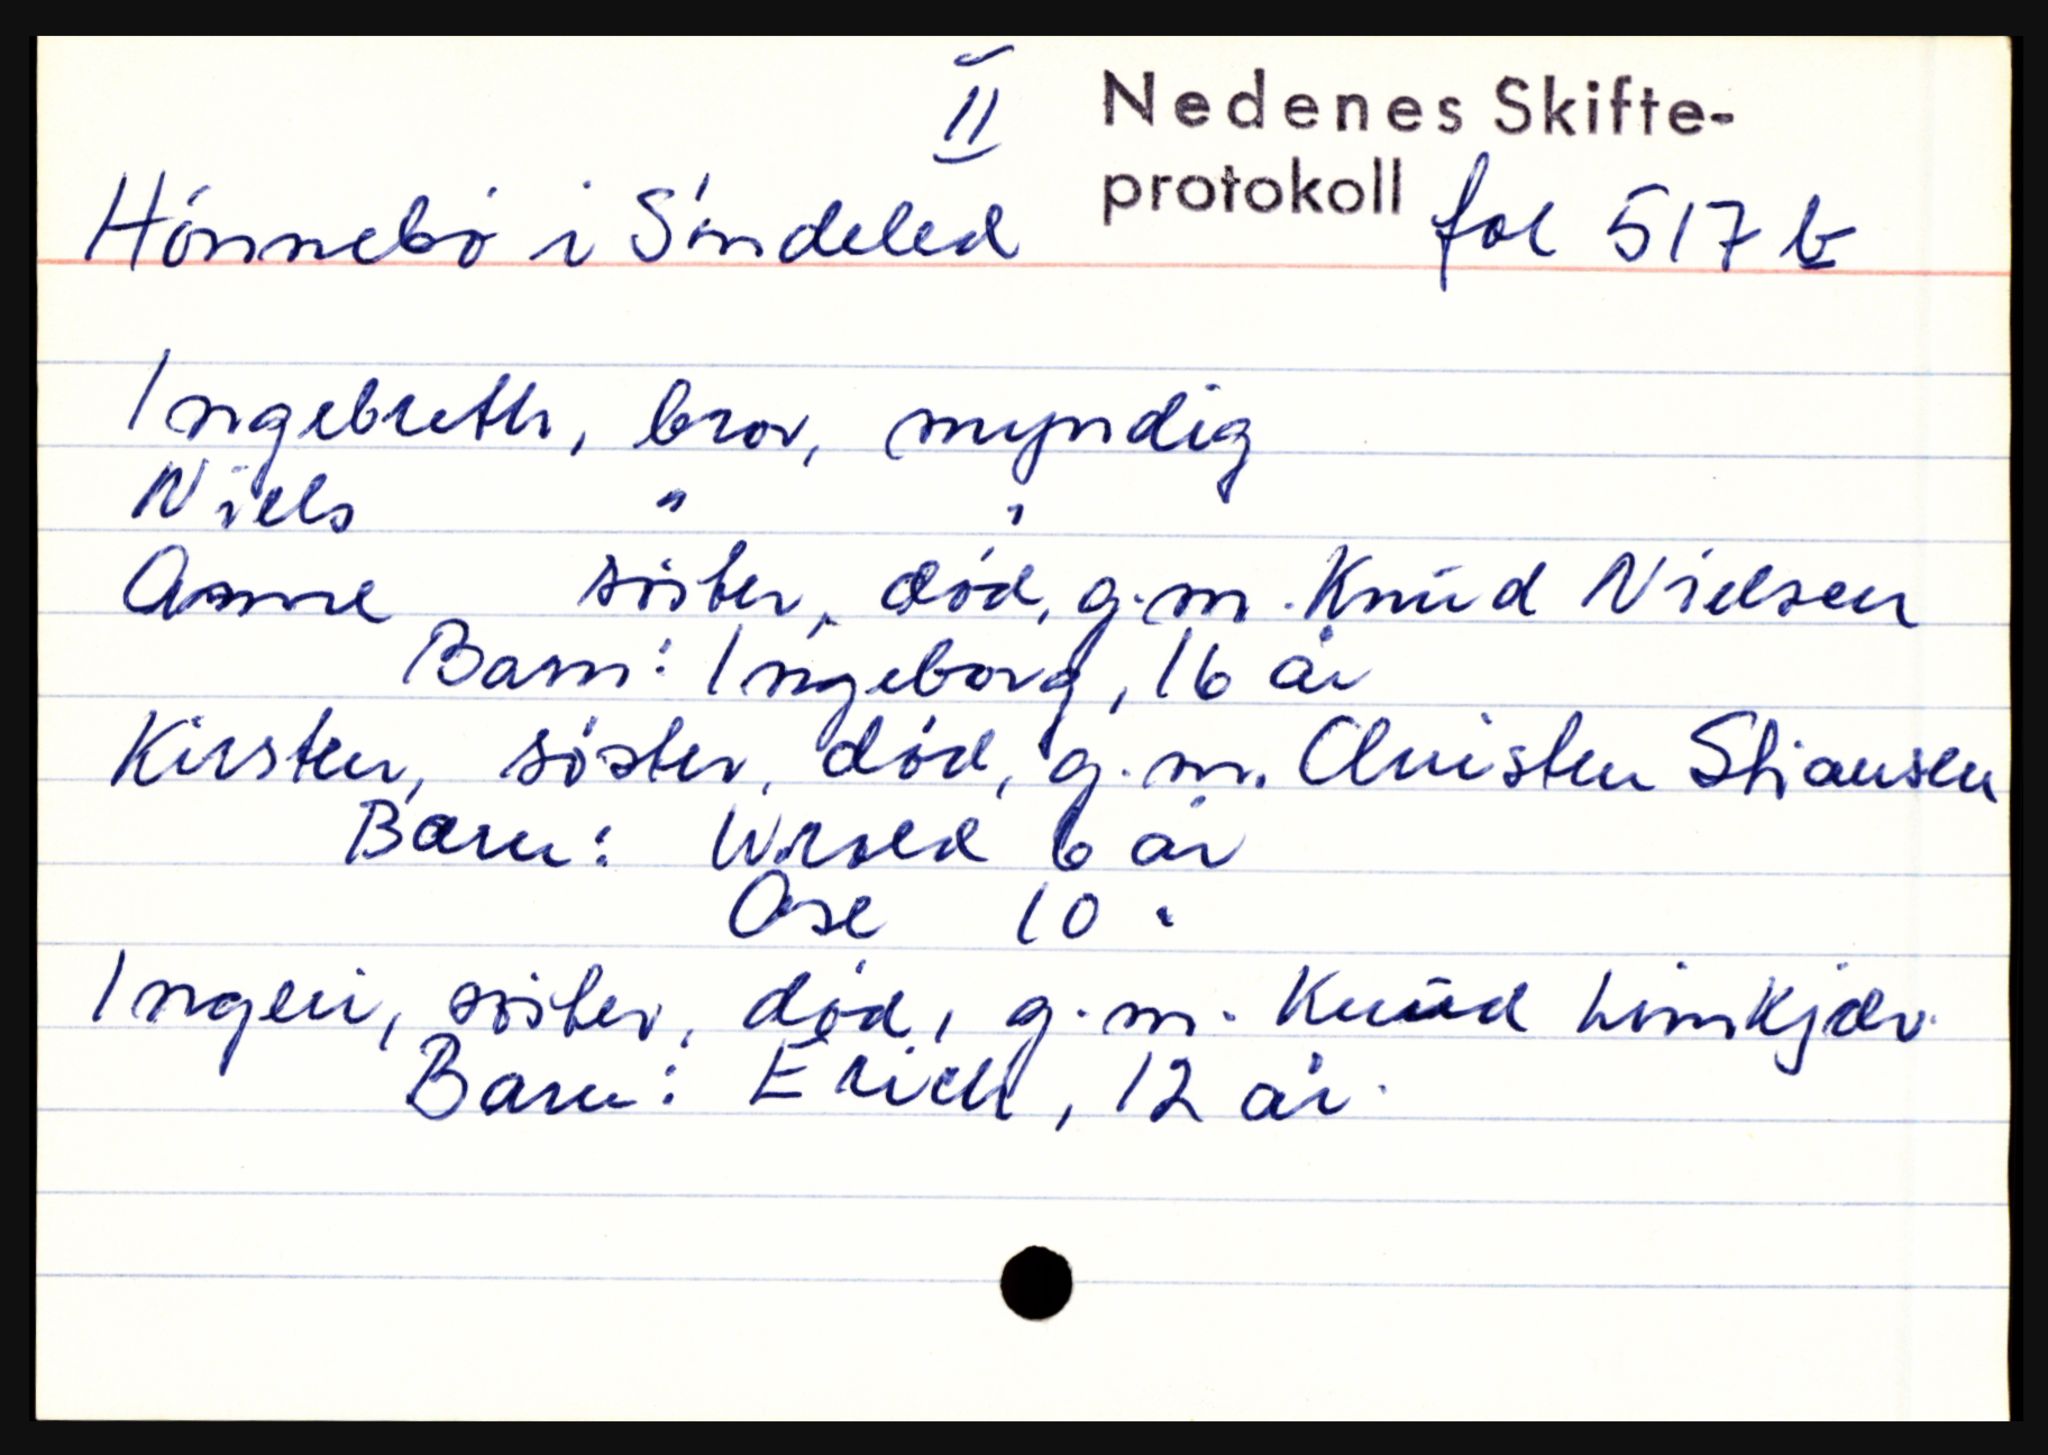 II Nedenes Skifte-
protokoll fol 517 b
Hónnebó i Sóndeled
Ingebreth, bror, myndig
Niels " "
Anne sóster, dód, g.m. Knud Nielsen
Barn: Ingeborg, 16 år
Kirsten, sóster, dód, g.m. Christen Stiansen
Barn: Wrold 6 år
Ose 10 "
Ingeri, sóster, dód, g.m. Knud Limkjær.
Barn: Erich, 12 år.